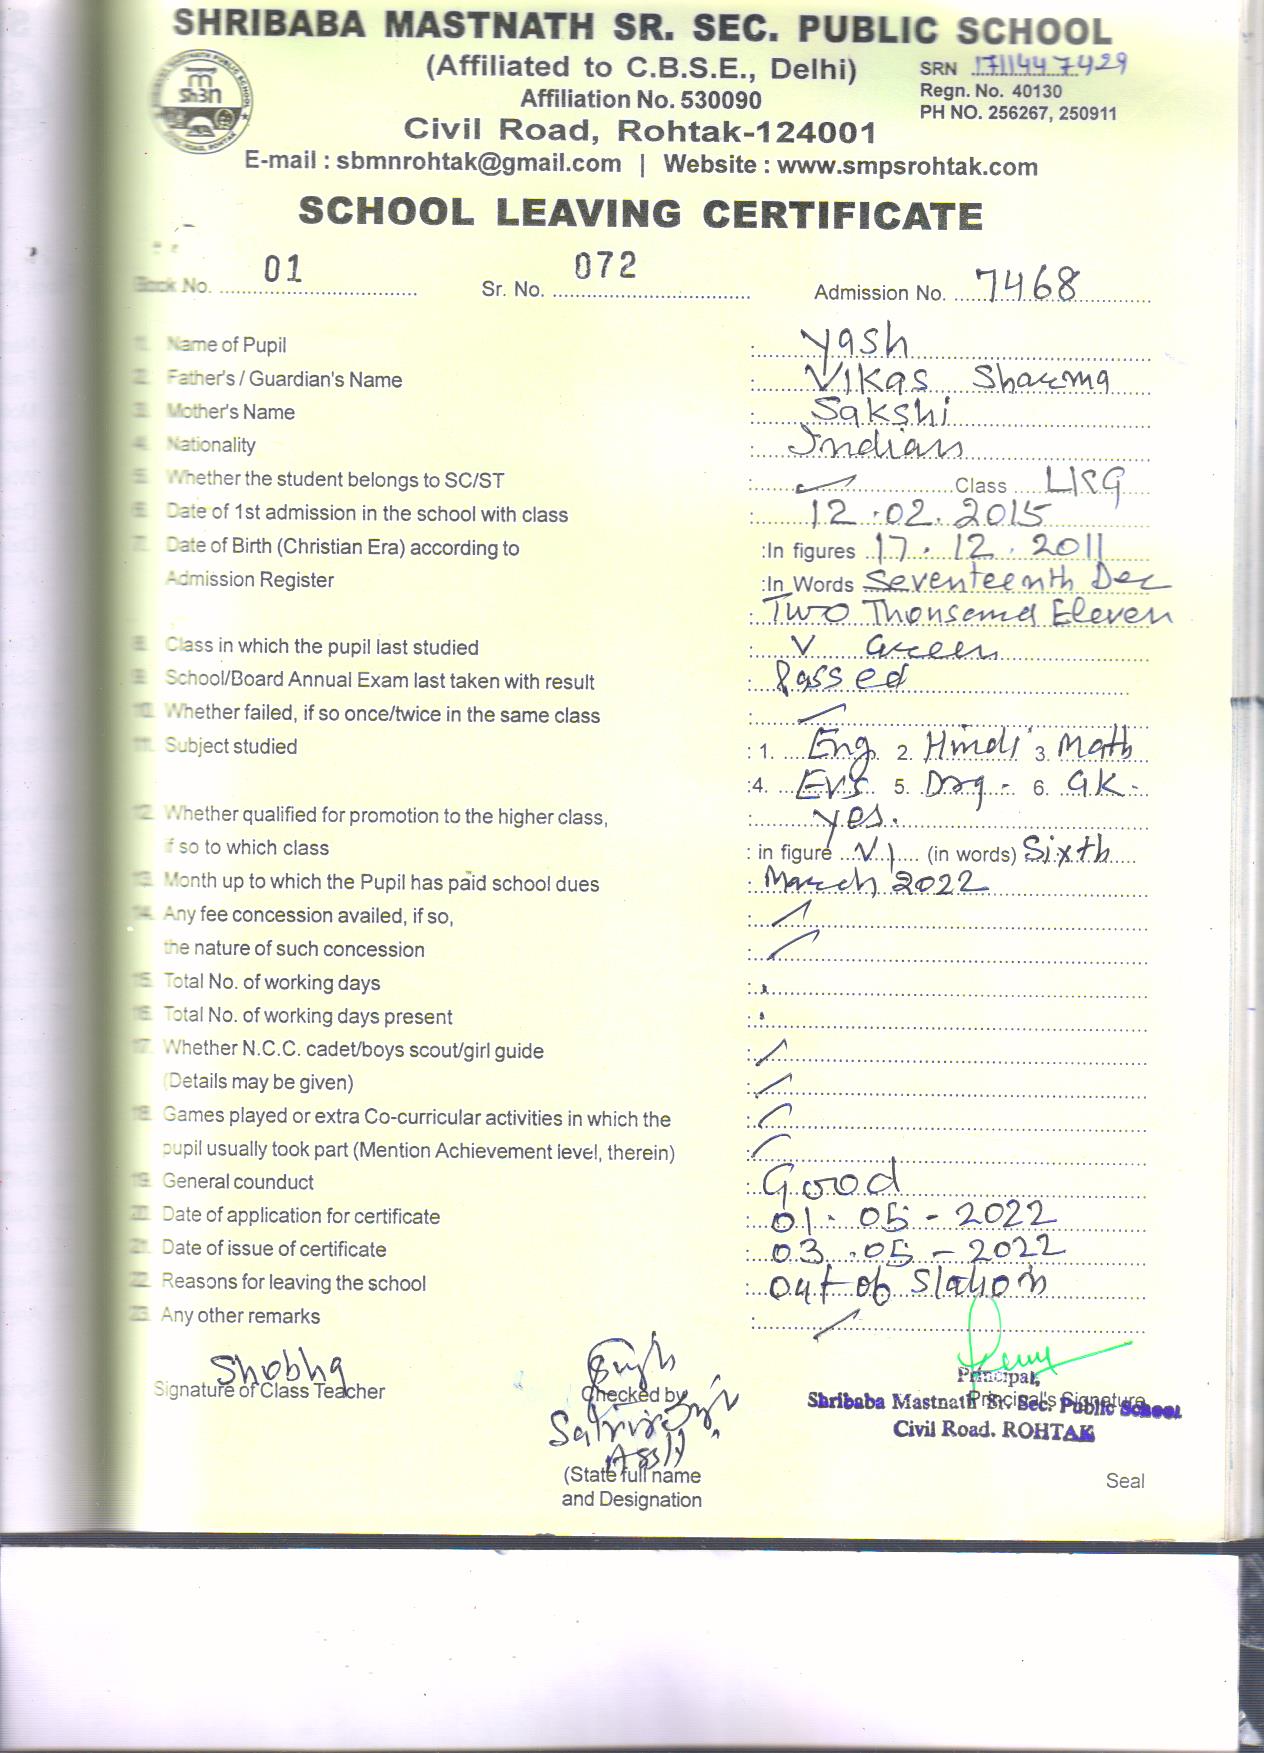 SHRIBABA MASTNATH SR. SEC. PUBLIC SCHOOL
(Affiliated to C.B.S.E., Delhi)
SRN 1711447429
Affiliation No. 530090
Regn. No. 40130
PH NO. 256267, 250911
Civil Road, Rohtak-124001
E-mail : sbmnrohtak@gmail.com | Website : www.smpsrohtak.com
SCHOOL LEAVING CERTIFICATE
Book No. 01 Sr. No. 072 Admission No. 7468
1. Name of Pupil : Yash
2. Father's / Guardian's Name : Vikas Sharma
3. Mother's Name : Sakshi
4. Nationality : Indian
5. Whether the student belongs to SC/ST : Class LKG
6. Date of 1st admission in the school with class : 12.02.2015
7. Date of Birth (Christian Era) according to :In figures 17.12.2011
Admission Register :In Words Seventeenth Dec
: Two Thousand Eleven
8. Class in which the pupil last studied : V Green
9. School/Board Annual Exam last taken with result : Passed
10. Whether failed, if so once/twice in the same class :
11. Subject studied : 1. Eng. 2. Hindi 3. Math
:4. EVS 5. Drg - 6. GK -
12. Whether qualified for promotion to the higher class, : Yes.
if so to which class : in figure VI (in words) Sixth
13. Month up to which the Pupil has paid school dues : March, 2022
14. Any fee concession availed, if so, :
the nature of such concession :
15. Total No. of working days :
16. Total No. of working days present :
17. Whether N.C.C. cadet/boys scout/girl guide :
(Details may be given) :
18. Games played or extra Co-curricular activities in which the :
pupil usually took part (Mention Achievement level, therein) :
19. General counduct : Good
20. Date of application for certificate : 01-05-2022
21. Date of issue of certificate : 03-05-2022
22. Reasons for leaving the school : Out of Station
23. Any other remarks :
Shobha
Signature of Class Teacher
Checked by
Principal,
Principal's Signature
Shribaba Mastnath Sr. Sec. Public School
Civil Road. ROHTAK
(State full name
and Designation
Seal